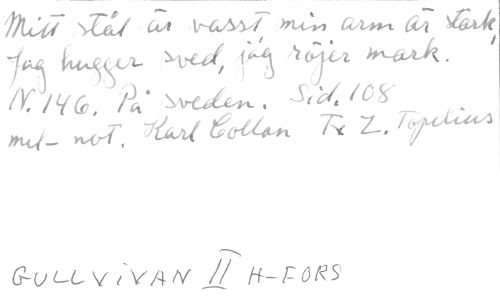 Mitt stål är vasst min arm är stark,
Jag hugger sved, jag röjer mark.
N. 146. På sveden. Sid. 108
mel- not. Karl Collan Tx Z. Topelius
GULLVIVAN II H-FORS